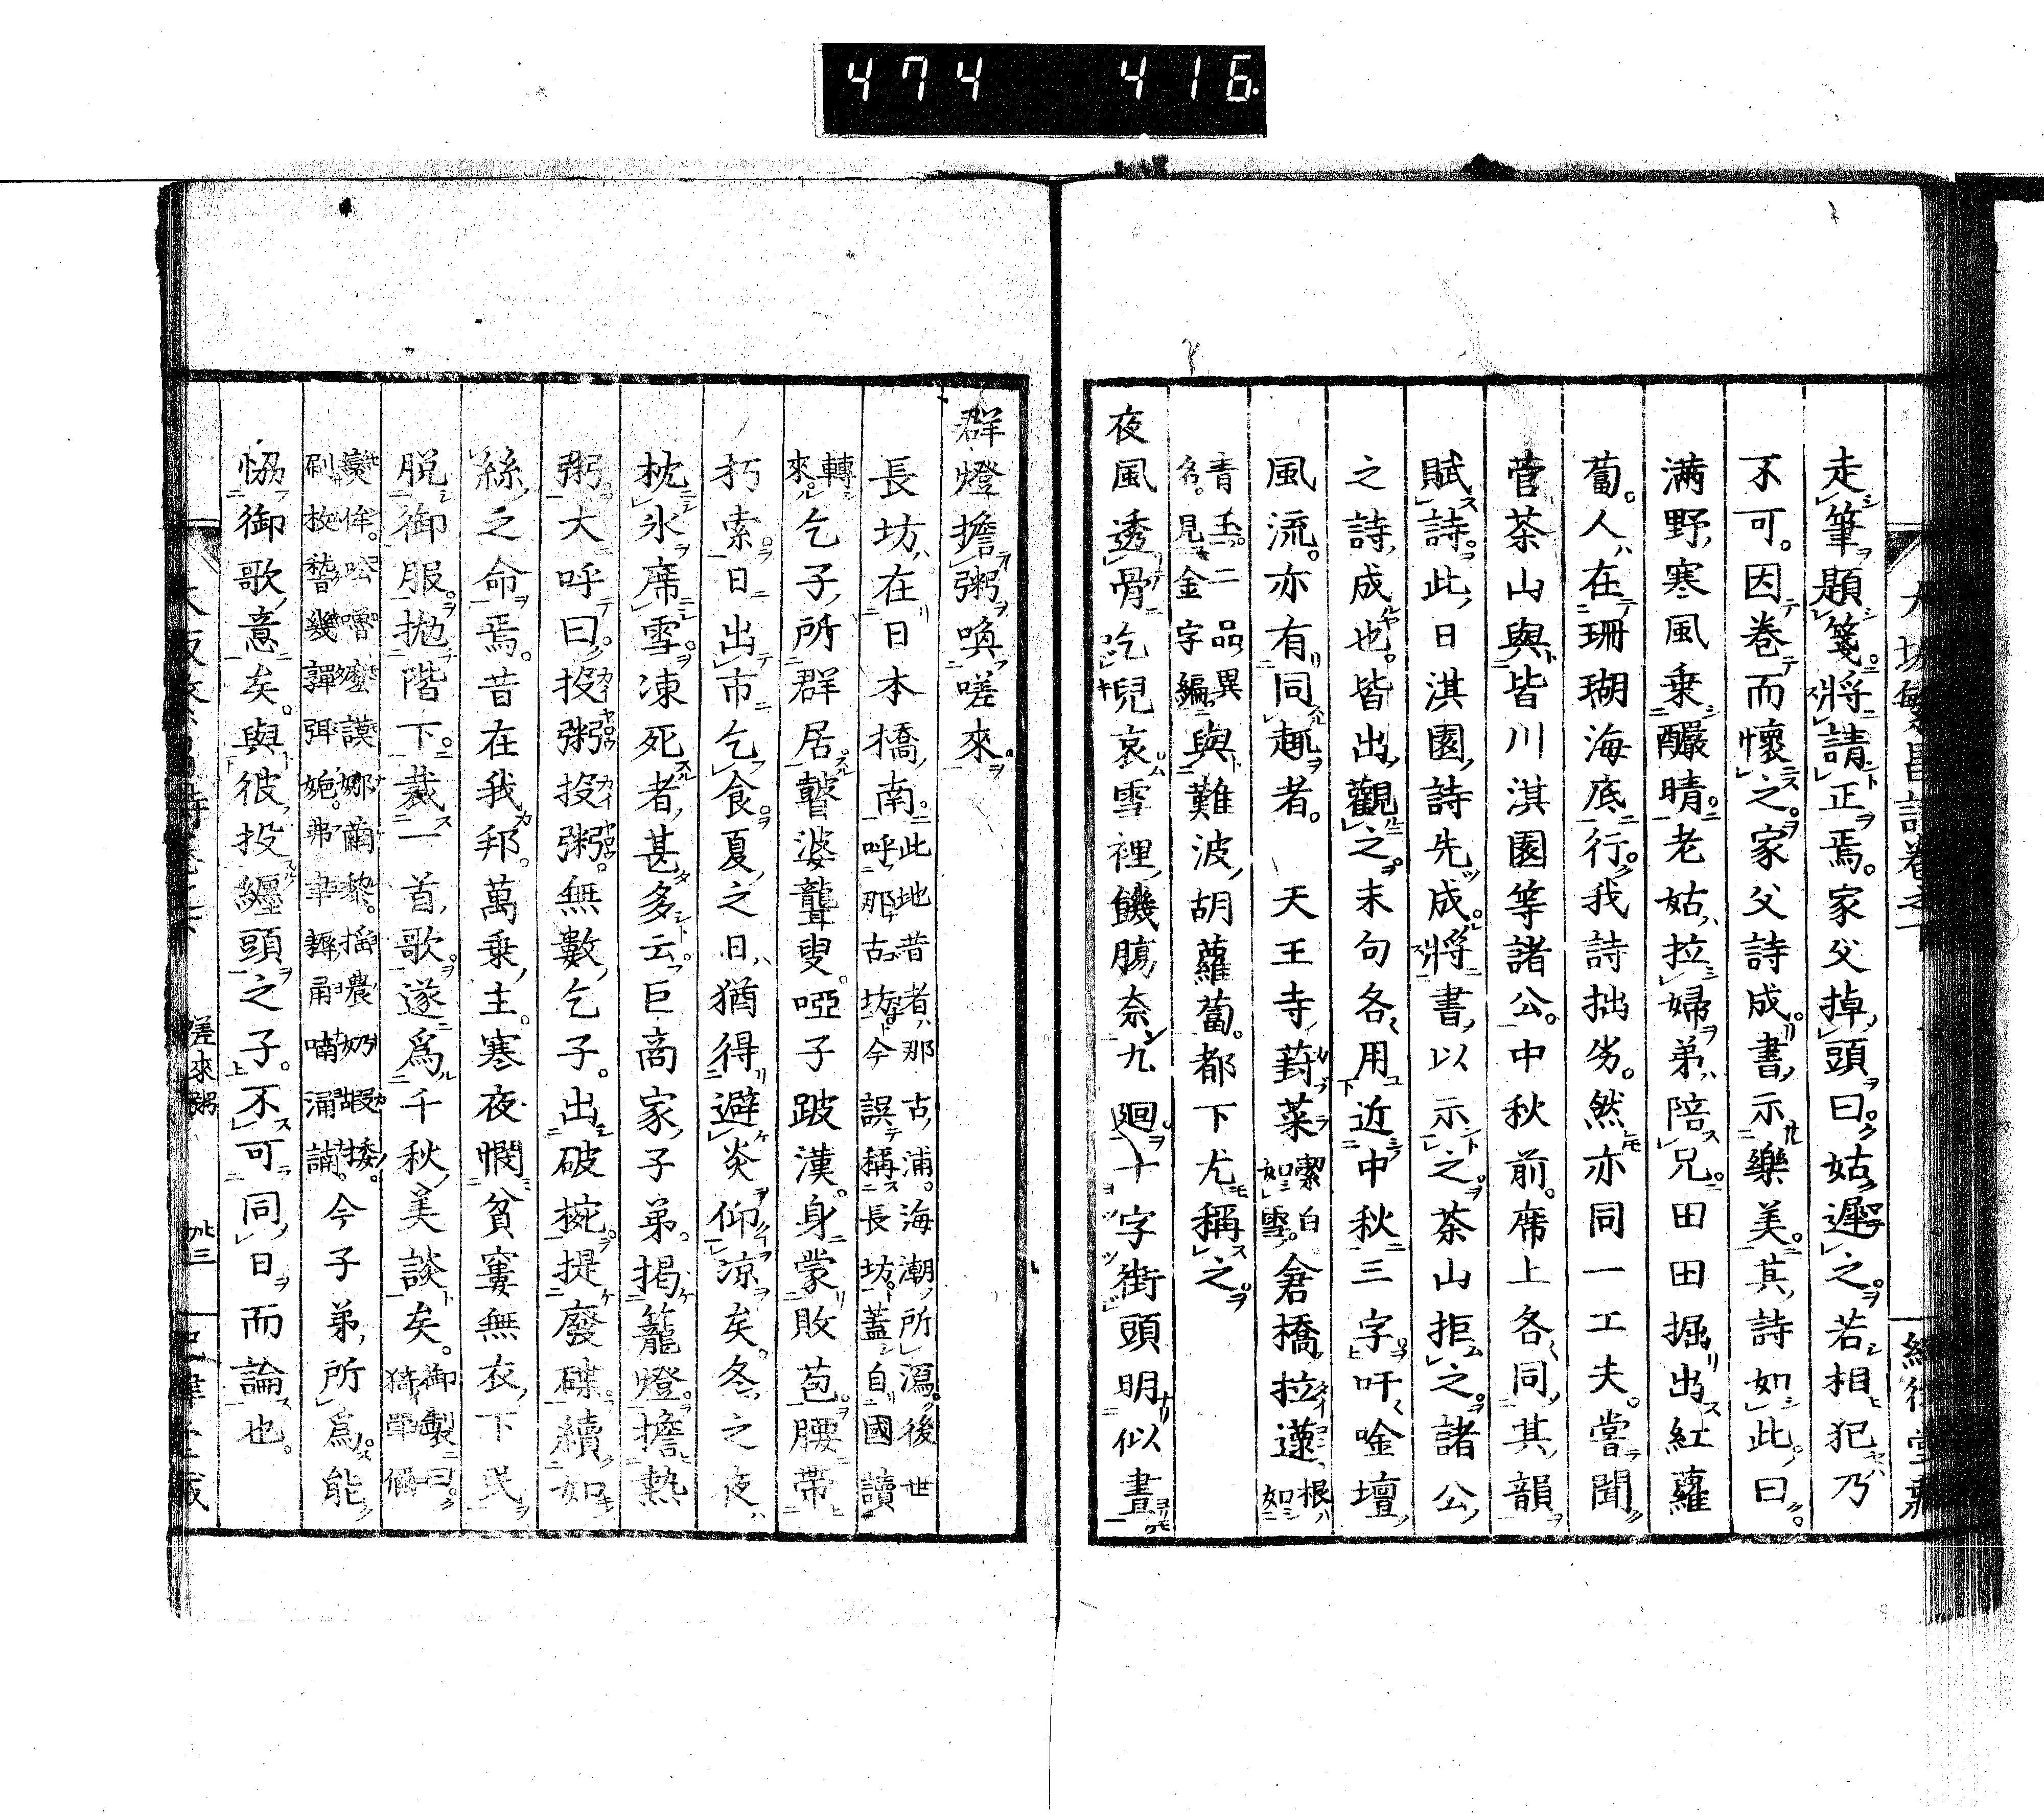 474 416
走筆題箋將請正焉家父掉頭曰姑遲之若相犯乃
不可因巻而懷之家父詩成書示樂美其詩如此曰
満野寒風乗釅晴老姑拉婦弟陪兄田田掘出紅蘿
蔔人在珊瑚海底行我詩拙劣然亦同一工夫嘗聞
菅茶山與皆川淇園等諸公中秋前席上各同其韻
賦詩此日淇園詩先成將書以示之茶山拒之諸公
之詩成也皆出觀之末句各用近中秋三字吁唫壇
風流亦有同趣者 天王寺葑菜潔白如雪倉橋拉蓬根如
青玉二品異名見金字編與難波胡蘿蔔都下尤稱之
夜風透骨訖兒哀雪裡饑腸奈九廻十字街頭明似晝
群燈擔粥喚嗟來
長坊在日本橋南此地昔者那古浦海潮所瀉後世呼那古坊今誤稱長坊蓋自國讀
轉來乞子所群居瞽婆聾叟啞子跛漢身蒙敗苞腰帶
朽索日出市乞食夏之日猶得避炎仰涼矣冬之夜
枕氷席雪凍死者甚多云巨商家子弟掲籠燈擔熱
粥大呼曰投粥投粥無數乞子出破椀提廢碟續如
絲之命焉昔在我邦萬乗主寒夜憫貧窶無衣下民
脱御服抛階下裁一首歌遂爲千秋美談矣御製曰
今子弟所爲能
恊御歌意矣與彼投纏頭之子不可同日而論也
嗟來粥 卅三